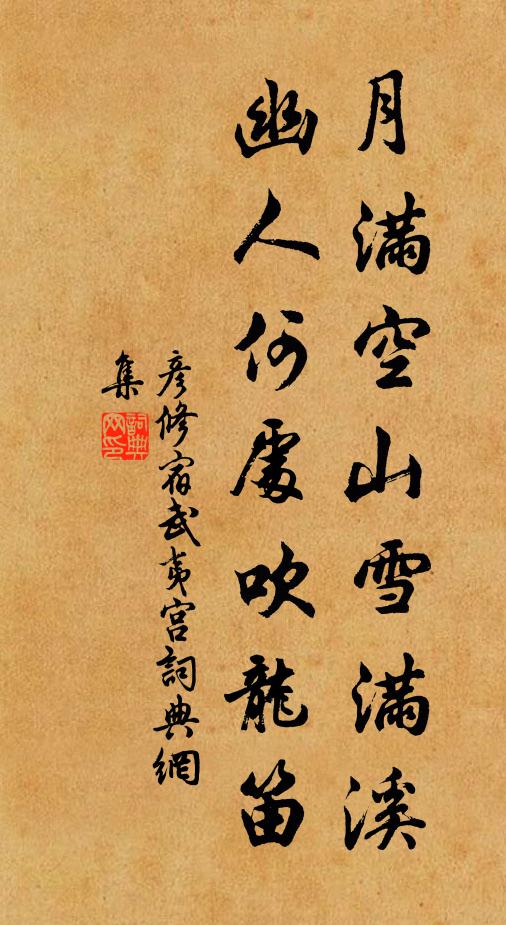 月滿空山雪滿溪
幽人何處吹龍笛
彥修宿武夷宮詞典網
集
詞典
网印